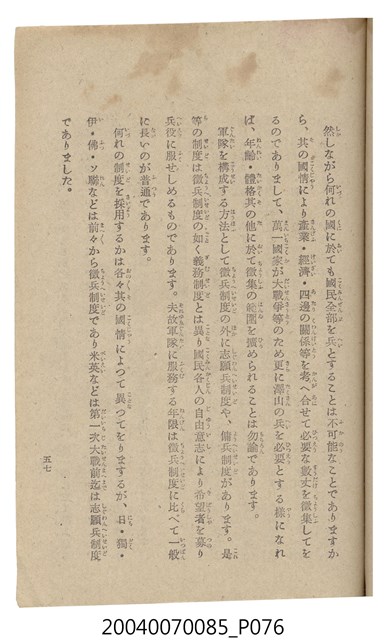 然しながら何れの國に於ても國民全部を兵とすることは不可能なことでありますか
ら、其の國情により產業・經濟・四邊の關係等を考へ合せて必要な數丈を徵集してを
るのでありまして、萬一國家が大戰爭等のため更に澤山の兵を必要とする樣になれ
ば、年齡・體格其の他に於て徵集の範圍を擴められることは勿論であります。
軍隊を構成する方法として徵兵制度の外に志願兵制度や、傭兵制度があります。是
等の制度は徵兵制度の如く義務制度とは異り國民各人の自由意志により希望者を募り
兵役に服せしめるものであります。夫故軍隊に服務する年限は徵兵制度に比べて一般
に長いのが普通であります。
何れの制度を採用するかは各々其の國情によつて異つてをりますが、日・獨・
伊・佛・ソ聯などは前々から徵兵制度であり米英などは第一次大戰前迄は志願兵制度
でありました。
五七
20040070085_P076